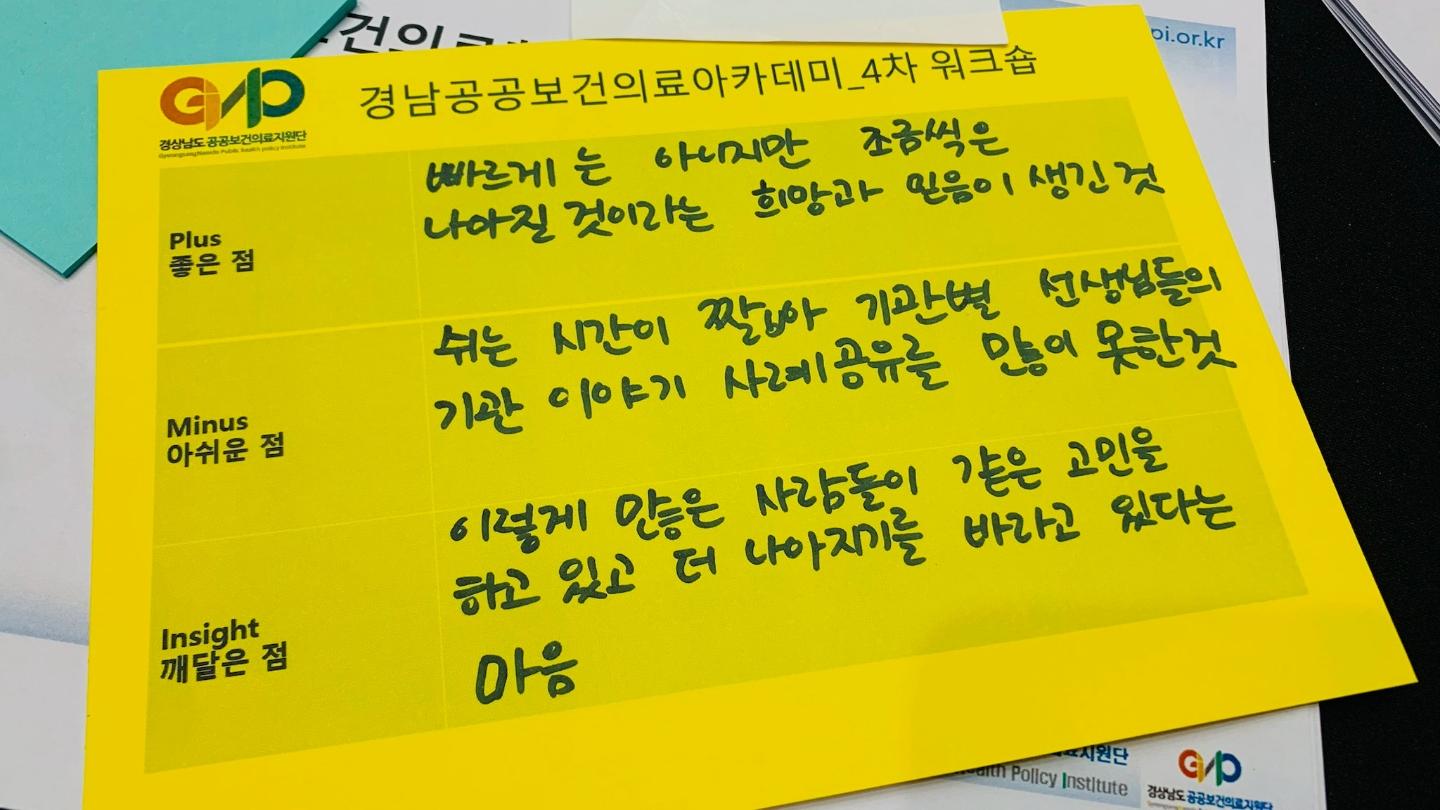 pi.or.kr
GNP
경상남도 공공보건의료지원단
Gyeongsang Namdo Public health policy institute
경남공공보건의료아카데미_4차 워크숍
Plus
좋은 점
빠르게는 아니지만 조금씩은
나아질 것이라는 희망과 믿음이 생긴 것
Minus
아쉬운 점
쉬는 시간이 짧아 기관별 선생님들의
기관 이야기 사례공유를 많이 못한것
Insight
깨달은 점
이렇게 많은 사람들이 같은 고민을
하고 있고 더 나아지기를 바라고 있다는
마음
지원단
Health Policy Institute
경상남도 공공보건의료지원단